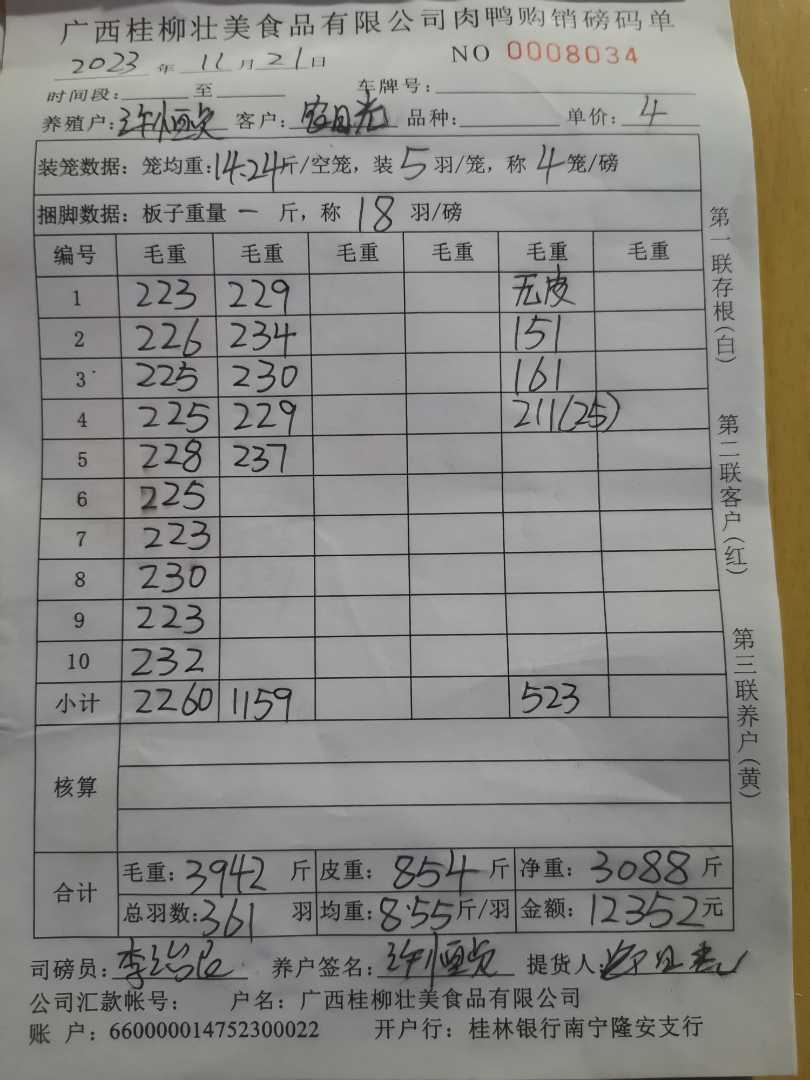 广西桂柳壮美食品有限公司肉鸭购销磅码单
2023 年 11 月 21 日 NO 0008034
时间段: 至 车牌号:
养殖户: 许恒 客户: 品种: 单价: 4
装笼数据: 笼均重: 14.24 斤/空笼, 装 5 羽/笼, 称 4 笼/磅
捆脚数据: 板子重量 一 斤, 称 18 羽/磅
编号 毛重 毛重 毛重 毛重 毛重 毛重
1 223 229 无皮
2 226 234 151
3 225 230 161
4 225 229 211(25)
5 228 237
6 225
7 223
8 230
9 223
10 232
小计 2260 1159 523
核算
合计
毛重: 3942 斤 皮重: 854 斤 净重: 3088 斤
总羽数: 361 羽 均重: 8.55 斤/羽 金额: 12352 元
司磅员: 李 养户签名: 许恒 提货人:
公司汇款帐号: 户名: 广西桂柳壮美食品有限公司
账 户: 660000014752300022 开户行: 桂林银行南宁隆安支行
第一联存根(白)
第二联客户(红)
第三联养户(黄)